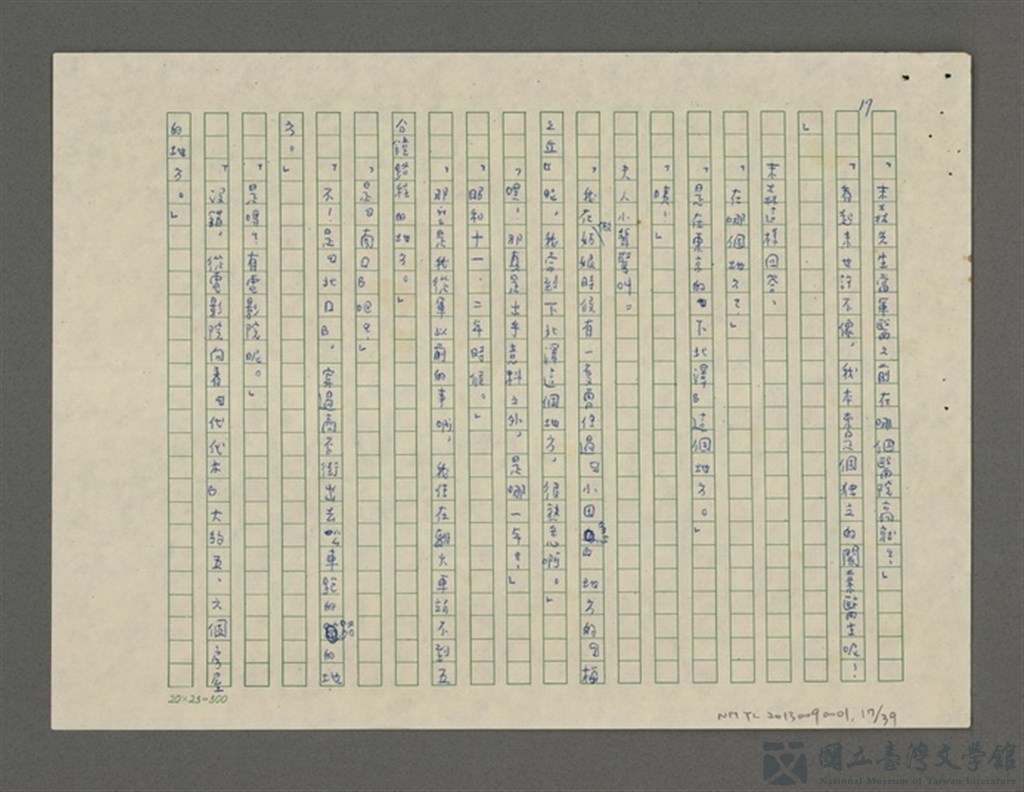 17
「末森先生當軍醫之前在哪個醫院高就？」
「看起來也許不像，我本來是個獨立的開業醫生呢！
」
末森這樣回答，
「在哪個地方？」
「是在東京的『下北澤』這個地方。」
「咦！」
夫人小聲驚叫。
「我在做姑娘時候有一隻曾住過『小田急』西地方的
之丘『呢，我念到下北澤這個地方，很熟悉啊。」
「哩，那真是出乎意料之外，是哪一年？」
「昭和十一、二年時候。」
「那就是我從軍以前的事啊，我住在離火車站不到五
分鐘路程的地方。」
「是『南口』吧？」
「不！是『北口』，穿過商店街出去 車 的 的地
方。」
「是嗎？有電影院呢。」
「沒錯，從電影院向著『代代木』大約五、六個房屋
的地方。」
20×25=500
NMTL 20130090001, 17/39
國立臺灣文學館
National Museum of Taiwan Literature